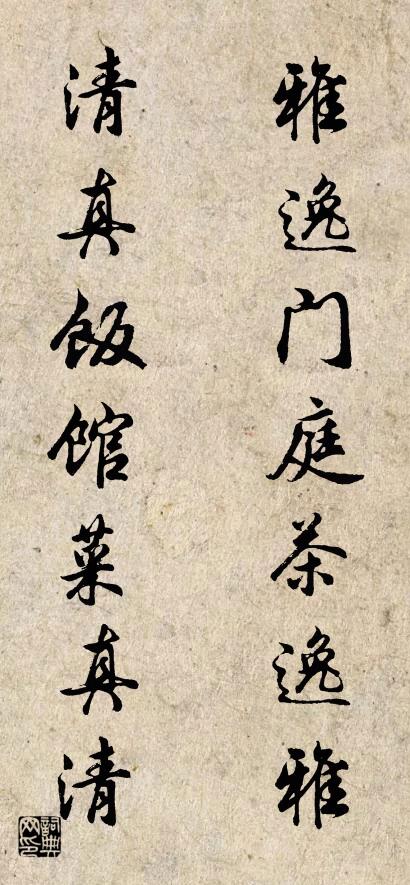 雅逸门庭茶逸雅
清真饭馆菜真清
词典网印